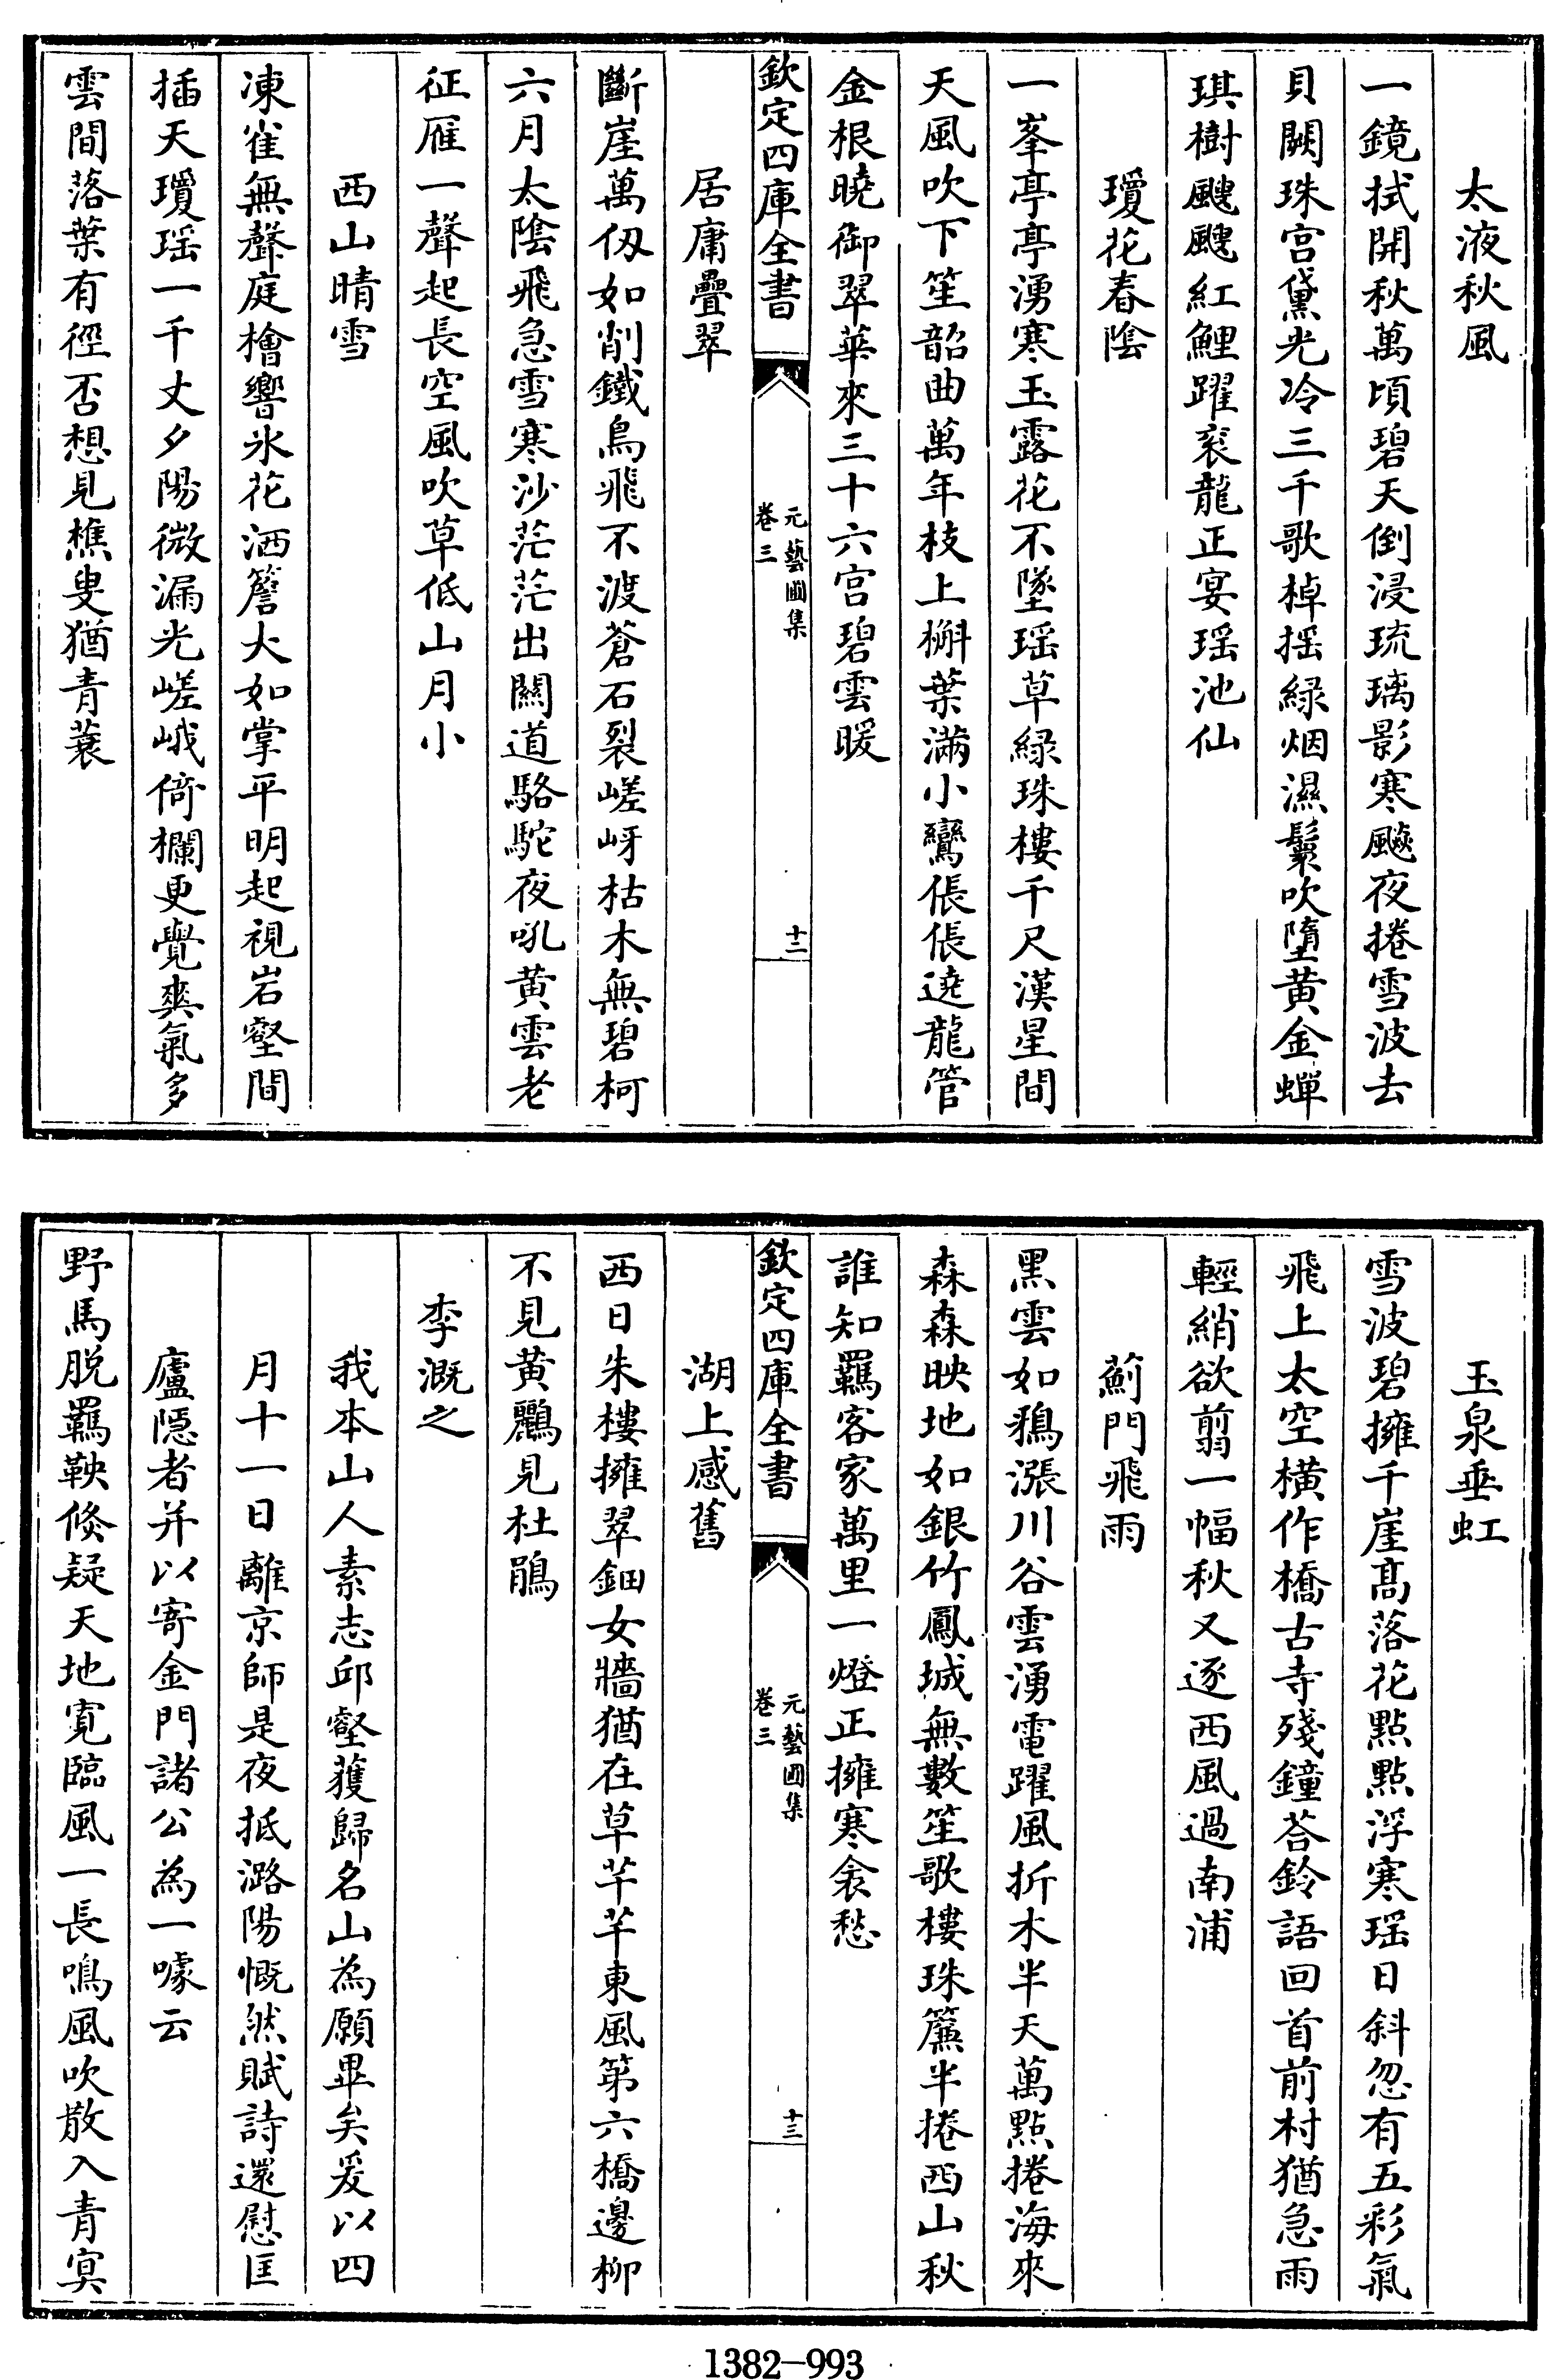 太液秋風
一鏡拭開秋萬頃碧天倒浸琉璃影寒飈夜捲雪波去
貝闕珠宫黛光冷三千歌棹揺緑烟濕鬟吹墮黄金蟬
琪樹颼颼紅鯉躍衮龍正宴瑶池仙
瓊花春陰
一峯亭亭湧寒玉露花不墜瑶草緑珠樓千尺漢星間
天風吹下笙韶曲萬年枝上槲葉滿小鸞倀倀遶龍管
金根曉御翠華來三十六宫碧雲暖
欽定四庫全書
元藝圃集
卷三
十二
居庸疊翠
斷崖萬仭如削鐵鳥飛不渡蒼石裂嵯岈枯木無碧柯
六月太陰飛急雪寒沙茫茫出關道駱駝夜吼黄雲老
征雁一聲起長空風吹草低山月小
西山晴雪
凍雀無聲庭檜響氷花洒簷大如掌平明起視岩壑間
插天瓊瑶一千丈夕陽微漏光嵯峨倚欄更覺爽氣多
雲間落葉有徑否想見樵叟猶青蓑
玉泉垂虹
雪波碧擁千崖髙落花點點浮寒瑶日斜忽有五彩氣
飛上太空横作橋古寺殘鐘荅鈴語回首前村猶急雨
輕綃欲翦一幅秋又逐西風過南浦
薊門飛雨
黒雲如鵶漲川谷雲湧電躍風折木半天萬點捲海來
森森映地如銀竹鳳城無數笙歌樓珠簾半捲西山秋
誰知羈客家萬里一燈正擁寒衾愁
欽定四庫全書
元藝圃集
卷三
十三
湖上感舊
西日朱樓擁翠鈿女牆猶在草芊芊東風第六橋邊柳
不見黄鸝見杜鵑
李溉之
我本山人素志邱壑獲歸名山為願畢矣爰以四
月十一日離京師是夜抵潞陽慨然賦詩還慰匡
廬隠者并以寄金門諸公為一噱云
野馬脱羈鞅倐疑天地寛臨風一長鳴風吹散入青㝠
1382-993